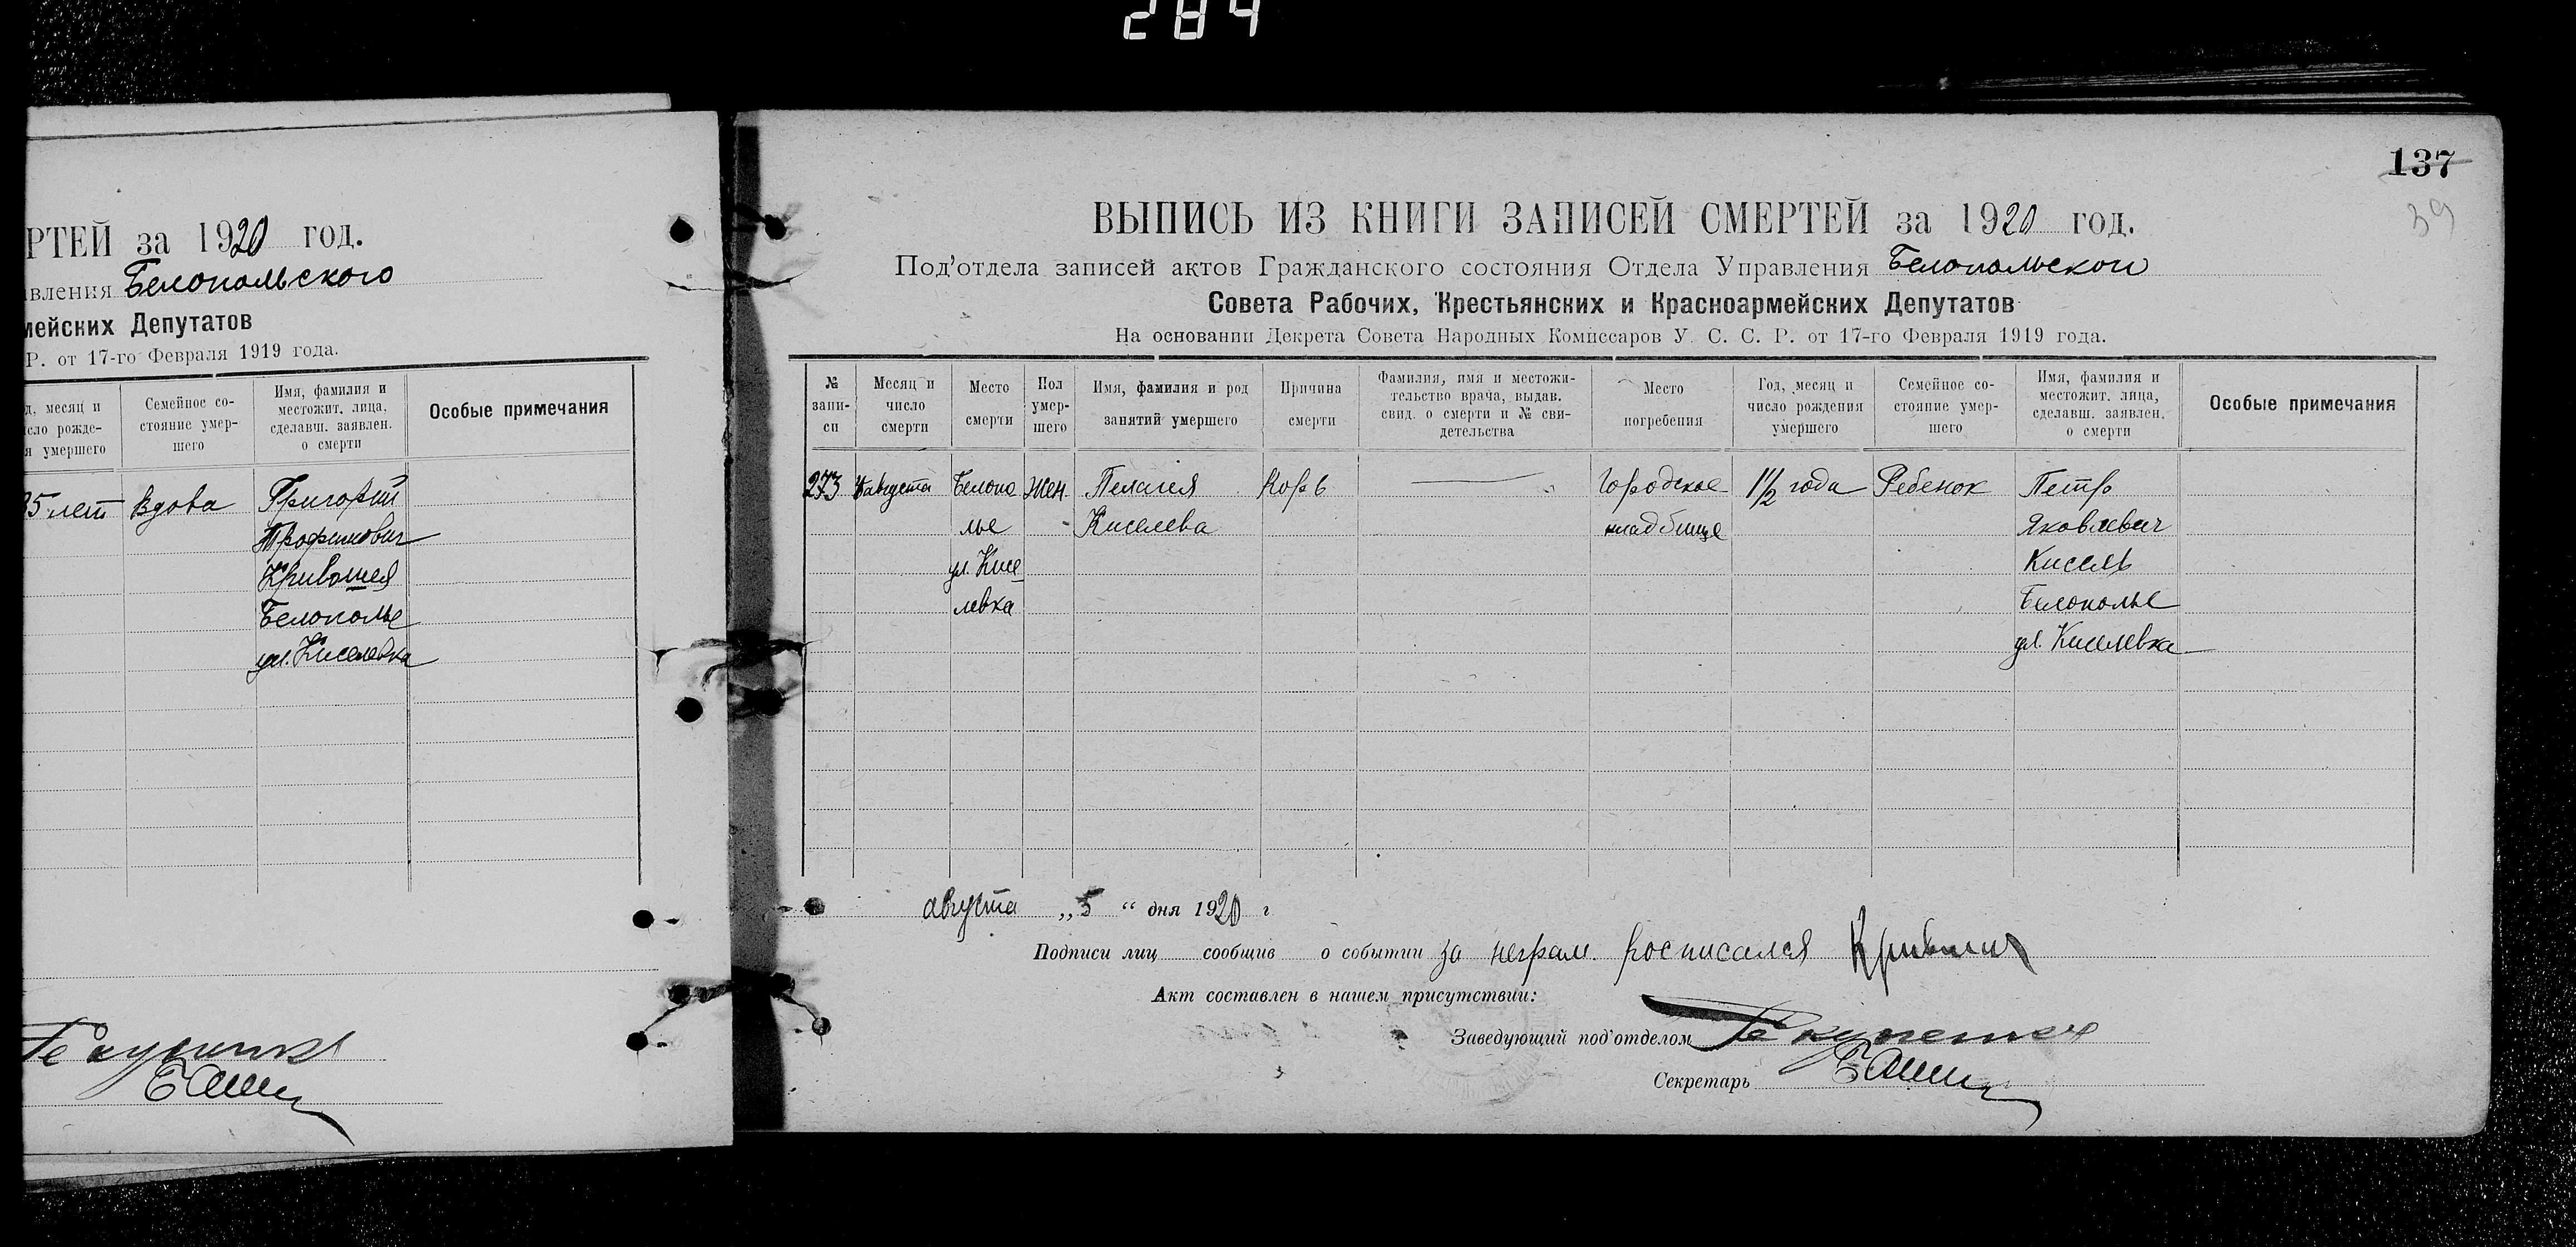 284
РТЕЙ за 1920 год.
вления Белопольского
мейских Депутатов
Р. от 17-го Февраля 1919 года.
д, месяц и
сло рожде-
я умершего
Семейное со-
стояние умер-
шего
Имя, фамилия и
местожит. лица,
сделавш. заявлен.
о смерти
Особые примечания
35 лет
Вдова
Григорий
Трофимович
Кривошея
Белополье
ул. Киселевка
137
39
ВЫПИСЬ ИЗ КНИГИ ЗАПИСЕЙ СМЕРТЕЙ за 1920 год.
Под'отдела записей актов Гражданского состояния Отдела Управления Белопольского
Совета Рабочих, Крестьянских и Красноармейских Депутатов
На основании Декрета Совета Народных Комиссаров У. С. С. Р. от 17-го Февраля 1919 года.
№
запи-
си
Месяц и
число
смерти
Место
смерти
Пол
умер-
шего
Имя, фамилия и род
занятий умершего
Причина
смерти
Фамилия, имя и местожи-
тельство врача, выдав.
свид. о смерти и № сви-
детельства
Место
погребения
Год, месяц и
число рождения
умершего
Семейное со-
стояние умер-
шего
Имя, фамилия и
местожит. лица,
сделавш. заявлен.
о смерти
Особые примечания
273
августа
Белопо
лье
ул. Кисе
левка
Жен
Пелагея
Киселева
Корь
Городское
кладбище
1 1/2 года
Ребенок
Петр
Яковлевич
Кисель
Белополье
ул. Киселевка
августа „5“ дня 1920 г
Подписи лиц сообщив о событии за неграм. росписался
Акт составлен в нашем присутствии:
Заведующий под'отделом
Секретарь